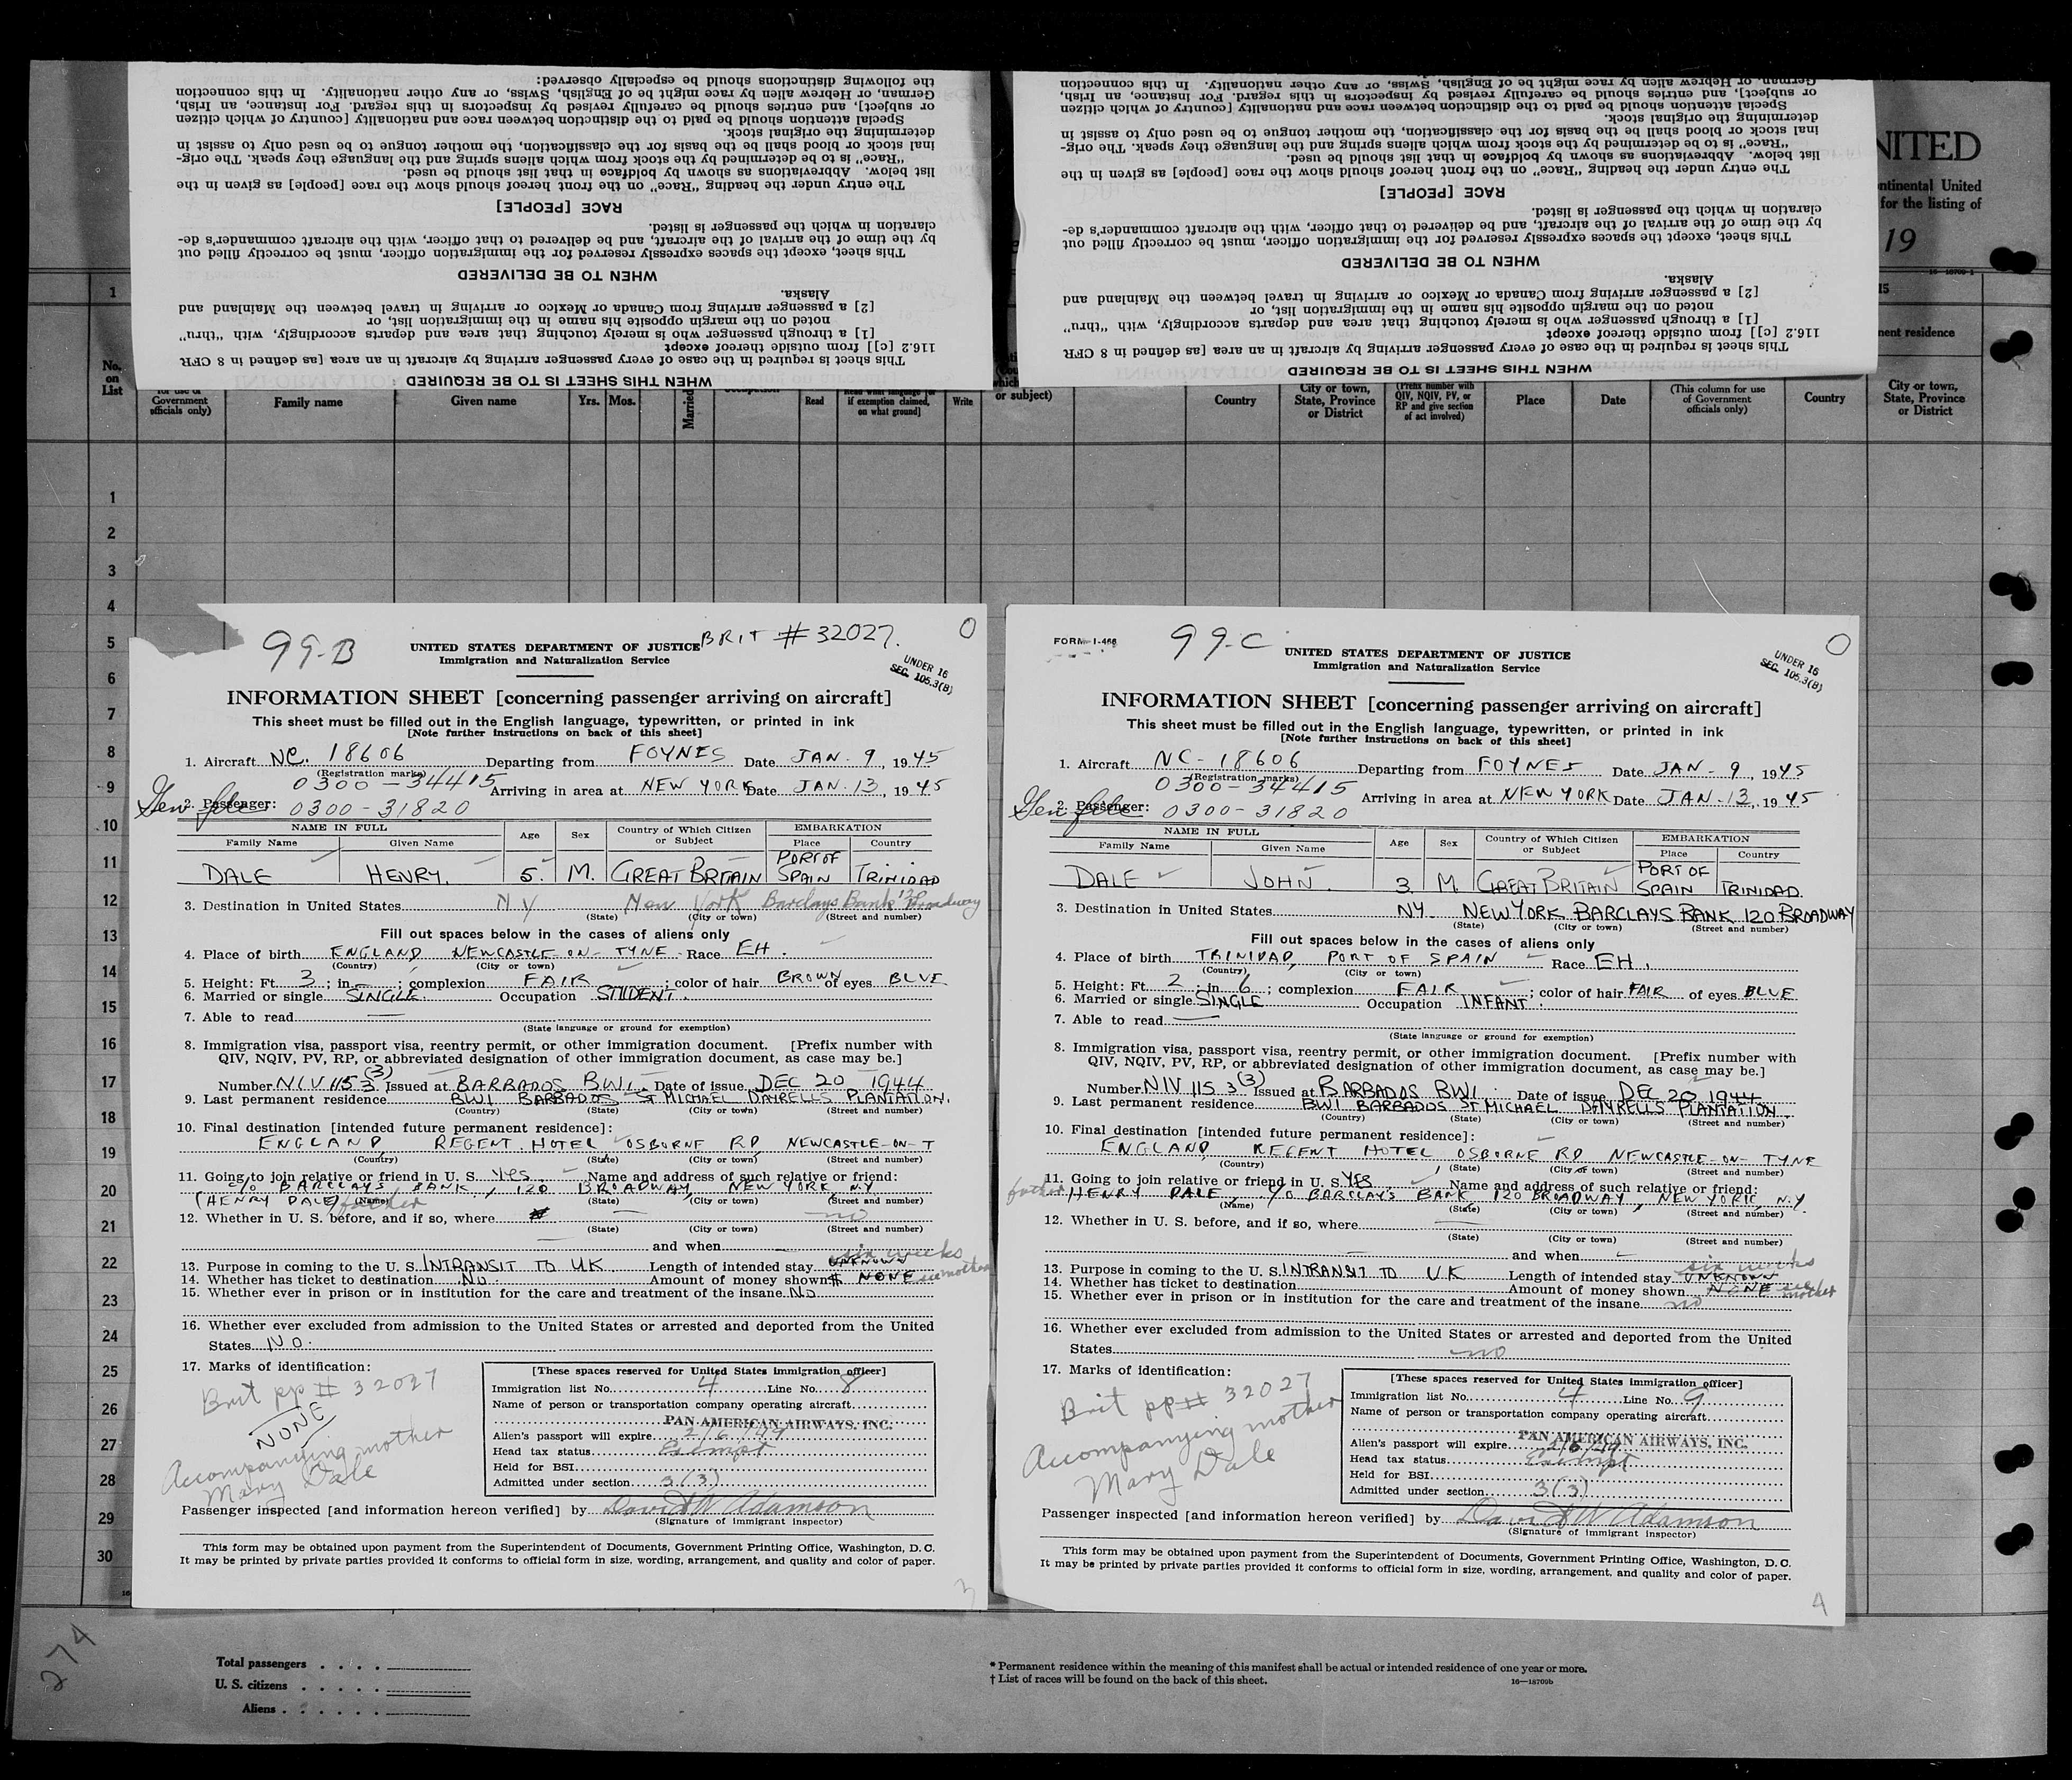 WHEN THIS SHEET IS TO BE REQUIRED
This sheet is required in the case of every passenger arriving by aircraft in an area [as defined in 8 CFR
116.2 [c]] from outside thereof except
[1] a through passenger who is merely touching that area and departs accordingly, with "thru"
noted on the margin opposite his name in the immigration list, or
[2] a passenger arriving from Canada or Mexico or arriving in travel between the Mainland and
Alaska.
WHEN TO BE DELIVERED
This sheet, except the spaces expressly reserved for the immigration officer, must be correctly filled out
by the time of the arrival of the aircraft, and be delivered to that officer, with the aircraft commander's de-
claration in which the passenger is listed.
RACE [PEOPLE]
The entry under the heading "Race" on the front hereof should show the race [people] as given in the
list below. Abbreviations as shown by boldface in that list should be used.
"Race" is to be determined by the stock from which aliens spring and the language they speak. The orig-
inal stock or blood shall be the basis for the classification, the mother tongue to be used only to assist in
determining the original stock.
Special attention should be paid to the distinction between race and nationality [country of which citizen
or subject], and entries should be carefully revised by inspectors in this regard. For instance, an Irish,
German, or Hebrew alien by race might be of English, Swiss, or any other nationality. In this connection
the following distinctions should be especially observed:
WHEN THIS SHEET IS TO BE REQUIRED
This sheet is required in the case of every passenger arriving by aircraft in an area [as defined in 8 CFR
116.2 [c]] from outside thereof except
[1] a through passenger who is merely touching that area and departs accordingly, with "thru"
noted on the margin opposite his name in the immigration list, or
[2] a passenger arriving from Canada or Mexico or arriving in travel between the Mainland and
Alaska.
WHEN TO BE DELIVERED
This sheet, except the spaces expressly reserved for the immigration officer, must be correctly filled out
by the time of the arrival of the aircraft, and be delivered to that officer, with the aircraft commander's de-
claration in which the passenger is listed.
RACE [PEOPLE]
The entry under the heading "Race" on the front hereof should show the race [people] as given in the
list below. Abbreviations as shown by boldface in that list should be used.
"Race" is to be determined by the stock from which aliens spring and the language they speak. The orig-
inal stock or blood shall be the basis for the classification, the mother tongue to be used only to assist in
determining the original stock.
Special attention should be paid to the distinction between race and nationality [country of which citizen
or subject], and entries should be carefully revised by inspectors in this regard. For instance, an Irish,
German, or Hebrew alien by race might be of English, Swiss, or any other nationality. In this connection
NITED
ntinental United
for the listing of
19
16-18709-1
1 15
nent residence
No. on List
Government officials only) Family name Given name Yrs. Mos. Married Read if exemption claimed, on what ground] Write or subject) Country City or town, State, Province or District (Prefix number with QIV, NQIV, PV, or RP and give section of act involved) Place Date (This column for use of Government officials only) Country City or town, State, Province or District
1
2
3
4
5
6
7
8
9
10
11
12
13
14
15
16
17
18
19
20
21
22
23
24
25
26
27
28
29
30
99-B BRIT # 32027. 0
UNITED STATES DEPARTMENT OF JUSTICE
Immigration and Naturalization Service
UNDER 16
SEC. 105.3(B)
INFORMATION SHEET [concerning passenger arriving on aircraft]
This sheet must be filled out in the English language, typewritten, or printed in ink
[Note further instructions on back of this sheet]
1. Aircraft NC. 18606 Departing from FOYNES Date JAN. 9, 1945
(Registration marks)
0300-34415 Arriving in area at NEW YORK Date JAN. 13, 1945
2. Passenger: 0300-31820
NAME IN FULL Age Sex Country of Which Citizen or Subject EMBARKATION
Family Name Given Name Place Country
DALE HENRY. 5. M. GREAT BRITAIN PORT OF SPAIN TRINIDAD
3. Destination in United States NY New York Barclays Bank 120 Broadway
(State) (City or town) (Street and number)
Fill out spaces below in the cases of aliens only
4. Place of birth ENGLAND NEWCASTLE-ON-TYNE Race EH.
(Country) (City or town)
5. Height: Ft. 3; in. —; complexion FAIR; color of hair BROWN of eyes BLUE
6. Married or single SINGLE. Occupation STUDENT.
7. Able to read —
(State language or ground for exemption)
8. Immigration visa, passport visa, reentry permit, or other immigration document. [Prefix number with
QIV, NQIV, PV, RP, or abbreviated designation of other immigration document, as case may be.]
Number NIV 115 3(3) Issued at BARBADOS BWI. Date of issue DEC 20 1944
9. Last permanent residence BWI BARBADOS ST MICHAEL DAYRELLS PLANTATION.
(Country) (State) (City or town) (Street and number)
10. Final destination [intended future permanent residence]:
ENGLAND REGENT HOTEL OSBORNE RD NEWCASTLE-ON-T
(Country) (State) (City or town) (Street and number)
11. Going to join relative or friend in U. S. Yes Name and address of such relative or friend:
c/o BARCLAYS BANK, 120 BROADWAY, NEW YORK NY
(HENRY DALE) father (Name) (State) (City or town) (Street and number)
12. Whether in U. S. before, and if so, where — no
(State) (City or town) (Street and number)
and when
six weeks
13. Purpose in coming to the U. S. INTRANSIT TO UK Length of intended stay UNKNOWN
14. Whether has ticket to destination No. Amount of money shown $ NONE see mother
15. Whether ever in prison or in institution for the care and treatment of the insane No
16. Whether ever excluded from admission to the United States or arrested and deported from the United
States NO.
17. Marks of identification:
Brit pp # 32027
NONE
Accompanying mother
Mary Dale
[These spaces reserved for United States immigration officer]
Immigration list No. 4 Line No. 8
Name of person or transportation company operating aircraft
PAN AMERICAN AIRWAYS, INC.
Alien's passport will expire 2/6/49
Head tax status Exempt
Held for BSI
Admitted under section 3(3)
Passenger inspected [and information hereon verified] by David W Adamson
(Signature of immigrant inspector)
This form may be obtained upon payment from the Superintendent of Documents, Government Printing Office, Washington, D. C.
It may be printed by private parties provided it conforms to official form in size, wording, arrangement, and quality and color of paper.
3
FORM I-466 99-C 0
UNITED STATES DEPARTMENT OF JUSTICE
Immigration and Naturalization Service
UNDER 16
SEC. 105.3(B)
INFORMATION SHEET [concerning passenger arriving on aircraft]
This sheet must be filled out in the English language, typewritten, or printed in ink
[Note further instructions on back of this sheet]
1. Aircraft NC-18606 Departing from FOYNES Date JAN-9, 1945
(Registration marks)
0300-34415 Arriving in area at NEW YORK Date JAN.13, 1945
2. Passenger: 0300-31820
NAME IN FULL Age Sex Country of Which Citizen or Subject EMBARKATION
Family Name Given Name Place Country
DALE JOHN. 3. M. GREAT BRITAIN PORT OF SPAIN TRINIDAD.
3. Destination in United States NY. NEW YORK BARCLAYS BANK 120 BROADWAY
(State) (City or town) (Street and number)
Fill out spaces below in the cases of aliens only
4. Place of birth TRINIDAD, PORT OF SPAIN Race EH.
(Country) (City or town)
5. Height: Ft. 2; in. 6; complexion FAIR; color of hair FAIR of eyes BLUE
6. Married or single SINGLE Occupation INFANT.
7. Able to read —
(State language or ground for exemption)
8. Immigration visa, passport visa, reentry permit, or other immigration document. [Prefix number with
QIV, NQIV, PV, RP, or abbreviated designation of other immigration document, as case may be.]
Number NIV 115 3(3) Issued at BARBADOS BWI Date of issue DEC 20 1944
9. Last permanent residence BWI BARBADOS ST MICHAEL DAYRELLS PLANTATION.
(Country) (State) (City or town) (Street and number)
10. Final destination [intended future permanent residence]:
ENGLAND REGENT HOTEL OSBORNE RD NEWCASTLE-ON-TYNE
(Country) (State) (City or town) (Street and number)
11. Going to join relative or friend in U. S. YES Name and address of such relative or friend:
father HENRY DALE, c/o BARCLAYS BANK, 120 BROADWAY, NEW YORK, N.Y.
(Name) (State) (City or town) (Street and number)
12. Whether in U. S. before, and if so, where —
(State) (City or town) (Street and number)
and when
six weeks
13. Purpose in coming to the U. S. INTRANSIT TO UK Length of intended stay UNKNOWN
14. Whether has ticket to destination Amount of money shown NONE see mother
15. Whether ever in prison or in institution for the care and treatment of the insane no
16. Whether ever excluded from admission to the United States or arrested and deported from the United
States no
17. Marks of identification:
Brit pp# 32027
Accompanying mother
Mary Dale
[These spaces reserved for United States immigration officer]
Immigration list No. 4 Line No. 9
Name of person or transportation company operating aircraft
PAN AMERICAN AIRWAYS, INC.
Alien's passport will expire 2/6/49
Head tax status Exempt
Held for BSI
Admitted under section 3(3)
Passenger inspected [and information hereon verified] by David W Adamson
(Signature of immigrant inspector)
This form may be obtained upon payment from the Superintendent of Documents, Government Printing Office, Washington, D. C.
It may be printed by private parties provided it conforms to official form in size, wording, arrangement, and quality and color of paper.
4
274
Total passengers
U. S. citizens
Aliens
* Permanent residence within the meaning of this manifest shall be actual or intended residence of one year or more.
† List of races will be found on the back of this sheet.
16—18709b